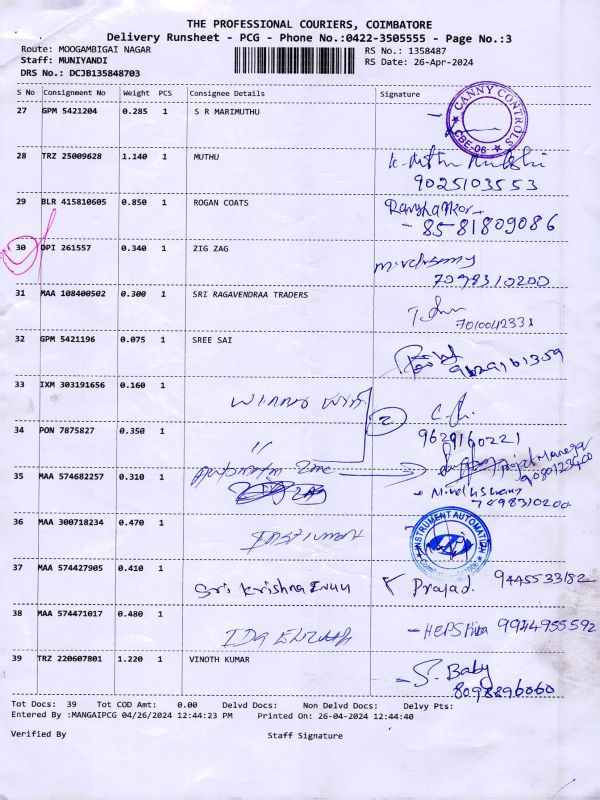 THE PROFESSIONAL COURIERS, COIMBATORE
Delivery Runsheet - PCG - Phone No.:0422-3505555 - Page No.:3
Route: MOOGAMBIGAI NAGAR RS No.: 1358487
Staff: MUNIYANDI RS Date: 26-Apr-2024
DRS No.: DCJB135848703
S No Consignment No Weight PCS Consignee Details Signature
27 GPM 5421204 0.285 1 S R MARIMUTHU
CANNY CONTROLS
CBE-06
28 TRZ 25009628 1.140 1 MUTHU
9025103553
29 BLR 415810605 0.850 1 ROGAN COATS
- 8581809086
30 DPI 261557 0.340 1 ZIG ZAG
7098310200
31 MAA 108400502 0.300 1 SRI RAGAVENDRAA TRADERS
7010042331
32 GPM 5421196 0.075 1 SREE SAI
9629161359
33 IXM 303191656 0.160 1
2
34 PON 7875827 0.350 1
9629160221
35 MAA 574682257 0.310 1
7098310200
36 MAA 300718234 0.470 1
INSTRUMENT AUTOMATION
37 MAA 574427905 0.410 1 Sri Krishna Prajad. 9445533182
38 MAA 574471017 0.480 1 9944955592
39 TRZ 220607801 1.220 1 VINOTH KUMAR
S. Baby
8098896060
Tot Docs: 39 Tot COD Amt: 0.00 Delvd Docs: Non Delvd Docs: Delvy Pts:
Entered By :MANGAIPCG 04/26/2024 12:44:23 PM Printed On: 26-04-2024 12:44:40
Verified By Staff Signature